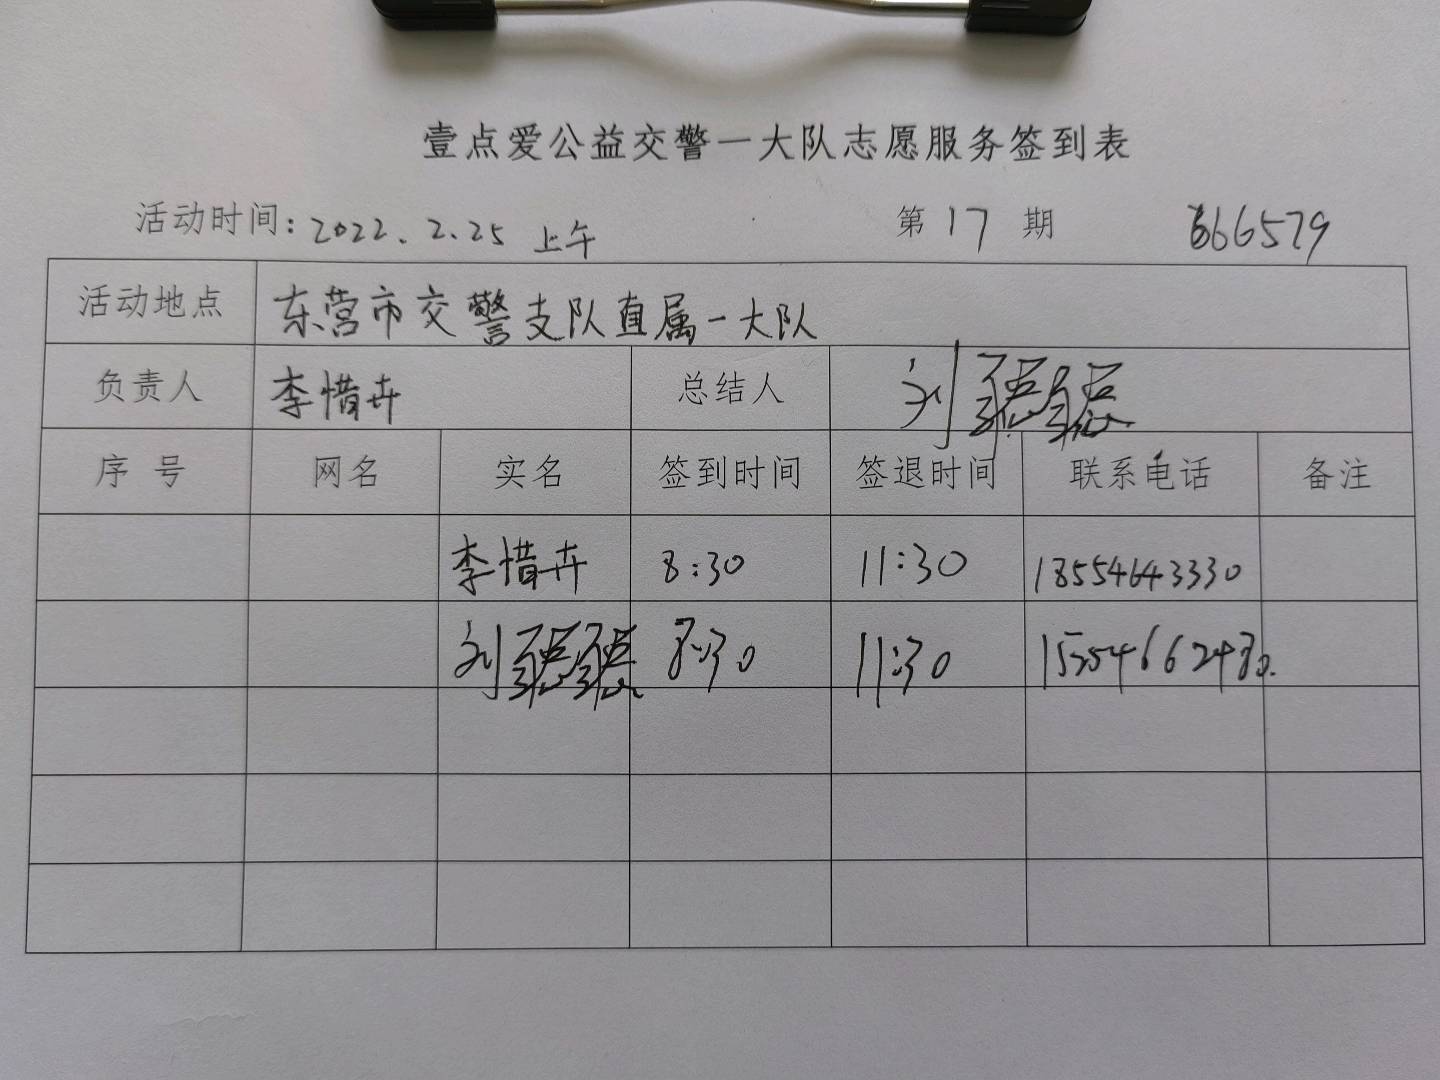 壹点爱公益交警一大队志愿服务签到表
活动时间: 2022.2.25 上午 第 17 期 666579
活动地点 东营市交警支队直属一大队
负责人 李惜卉 总结人 刘
序号 网名 实名 签到时间 签退时间 联系电话 备注
李惜卉 8:30 11:30 18554643330
刘 8:30 11:30 15254662480.